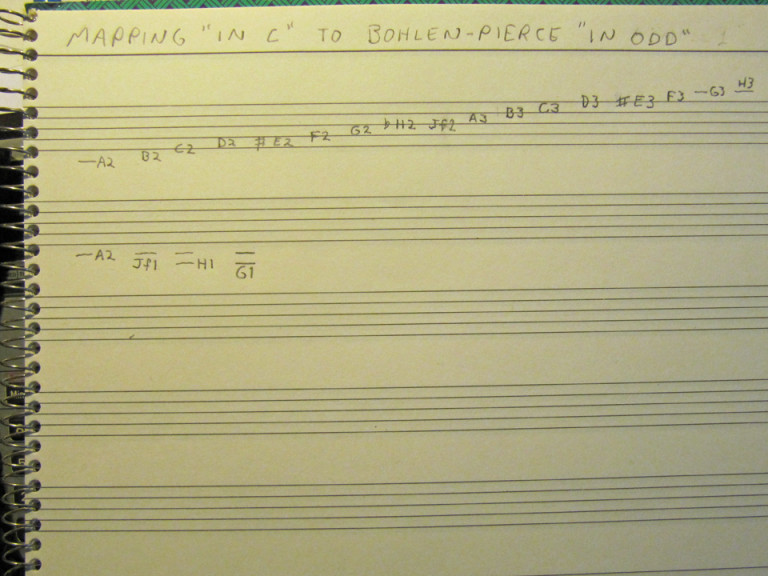 MAPPING "IN C" TO BOHLEN-PIERCE "IN ODD"
A2 B2 C2 D2 #E2 F2 G2 ♭H2 Jf2 A3 B3 C3 D3 #E3 F3 G3 H3
A2 Jf1 H1 G1